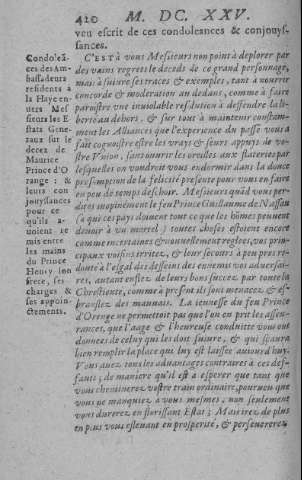 420 M. DC. XXV.
veu escrit de ces condoleances & conjouys-
sances.
Condoleã-
ces des Am-
bassadeurs
residents à
la Haye en-
uers Mes-
sieurs les E
stats Gene-
raux sur le
decez de
Maurice
Prince d'O
range: &
leurs con
jouyssances
pour ce
qu'ils a-
uoient re
mis entre
les mains
du Prince
Henry son
frere, ses
charges &
ses appoin-
ctements.
C'EST à vous Messieurs non point à deplorer par
des vains regrets le deceds de ce grand personnage,
mais à suiure ses traces & exemples, tant à nourrir
concorde & moderation au dedans, comme à faire
paroistre vne inuiolable resolution à deffendre la li-
berté au dehors, & sur tout à maintenir constam-
ment les Alliances que l'experience du passé vous a
fait cognoistre estre les vrays & seurs appuys de vo-
stre Vnion, sans ouurir les oreilles aux flateries par
lesquelles on voudroit vous endormir dans la douce
presomption de la felicité presente pour vous en faire
peu de temps deschoir. Messieurs quãd vous per-
distes inopinément le feu Prince Guillaume de Nassau
(à qui ces pays doiuent tout ce que les hõmes peuuent
deuoir à vn mortel) toutes choses estoient encore
comme incertaines & nouuellement reglees, vos prin-
cipaux voisins irritez, & leur secours à peu pres re-
doutté à l'esgal des desseins des ennemis vos ancestres-
res, autant enflez de leurs bons succez par toute la
Chrestienté, comme à present ils sont menacez & es-
branslez des mauuais. La ieunesse du feu Prince
d'Orenge ne permettoit pas que l'on en prit les asseu-
rances, que l'aage & l'heureuse conduitte vous ont
donnees de celuy qui les doit suiure, & qui sçaura
bien remplir la place qui luy est laissee aujourd'huy.
Vous auez tous les aduantages contraires à ces def-
fauts; de maniere qu'il est à esperer que tant que
vous cheminerez vostre train ordinaire, pourueu que
vous ne manquiez à vous mesmes, non seulement
vous durerez en florissant Estat; Mais irez de plus
en plus vous esleuant en prosperité, & perseuererez